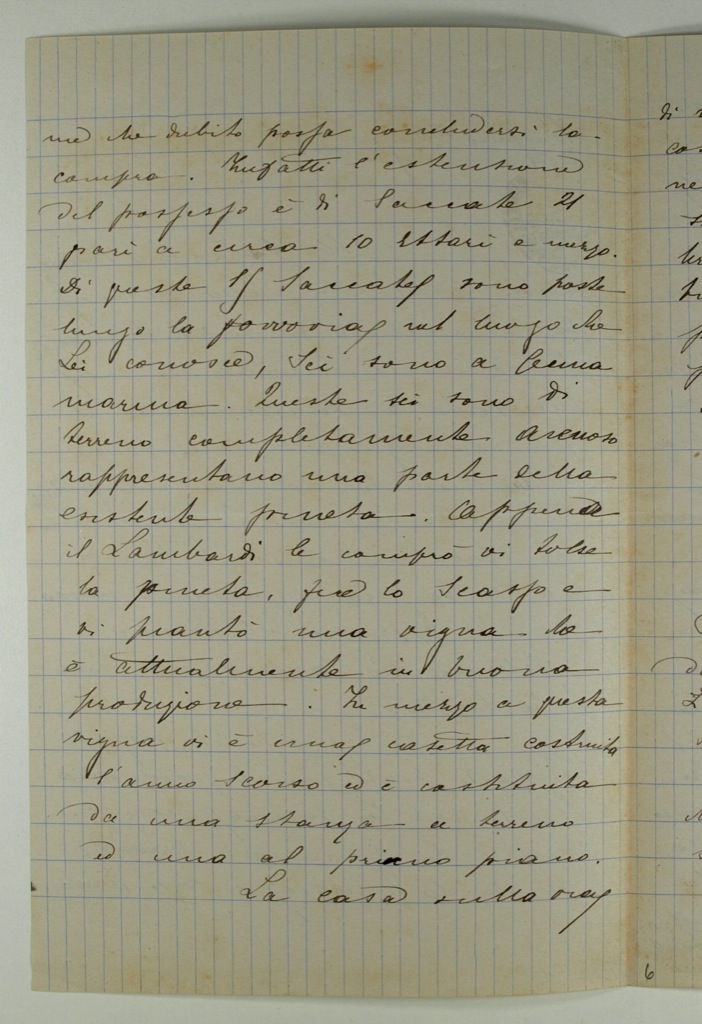 me che dubito possa concludersi la
compra. Infatti l'estensione
del possesso è di Saccate 21
pari a circa 10 Ettari e mezzo.
Di queste 15 Saccate sono poste
lungo la ferrovia nel luogo che
Lei conosce, Sei sono a
marina. Queste sei sono di
terreno completamente arenoso
rappresentano una parte della
esistente pineta. Appena
il Lambardi le comprò vi tolse
la pineta, fece lo Scasso e
vi piantò una vigna che
è attualmente in buona
produzione. In mezzo a questa
vigna vi è una casetta costruita
l'anno scorso ed è costituita
da una stanza a terreno
ed una al primo piano.
La casa sulla via
6